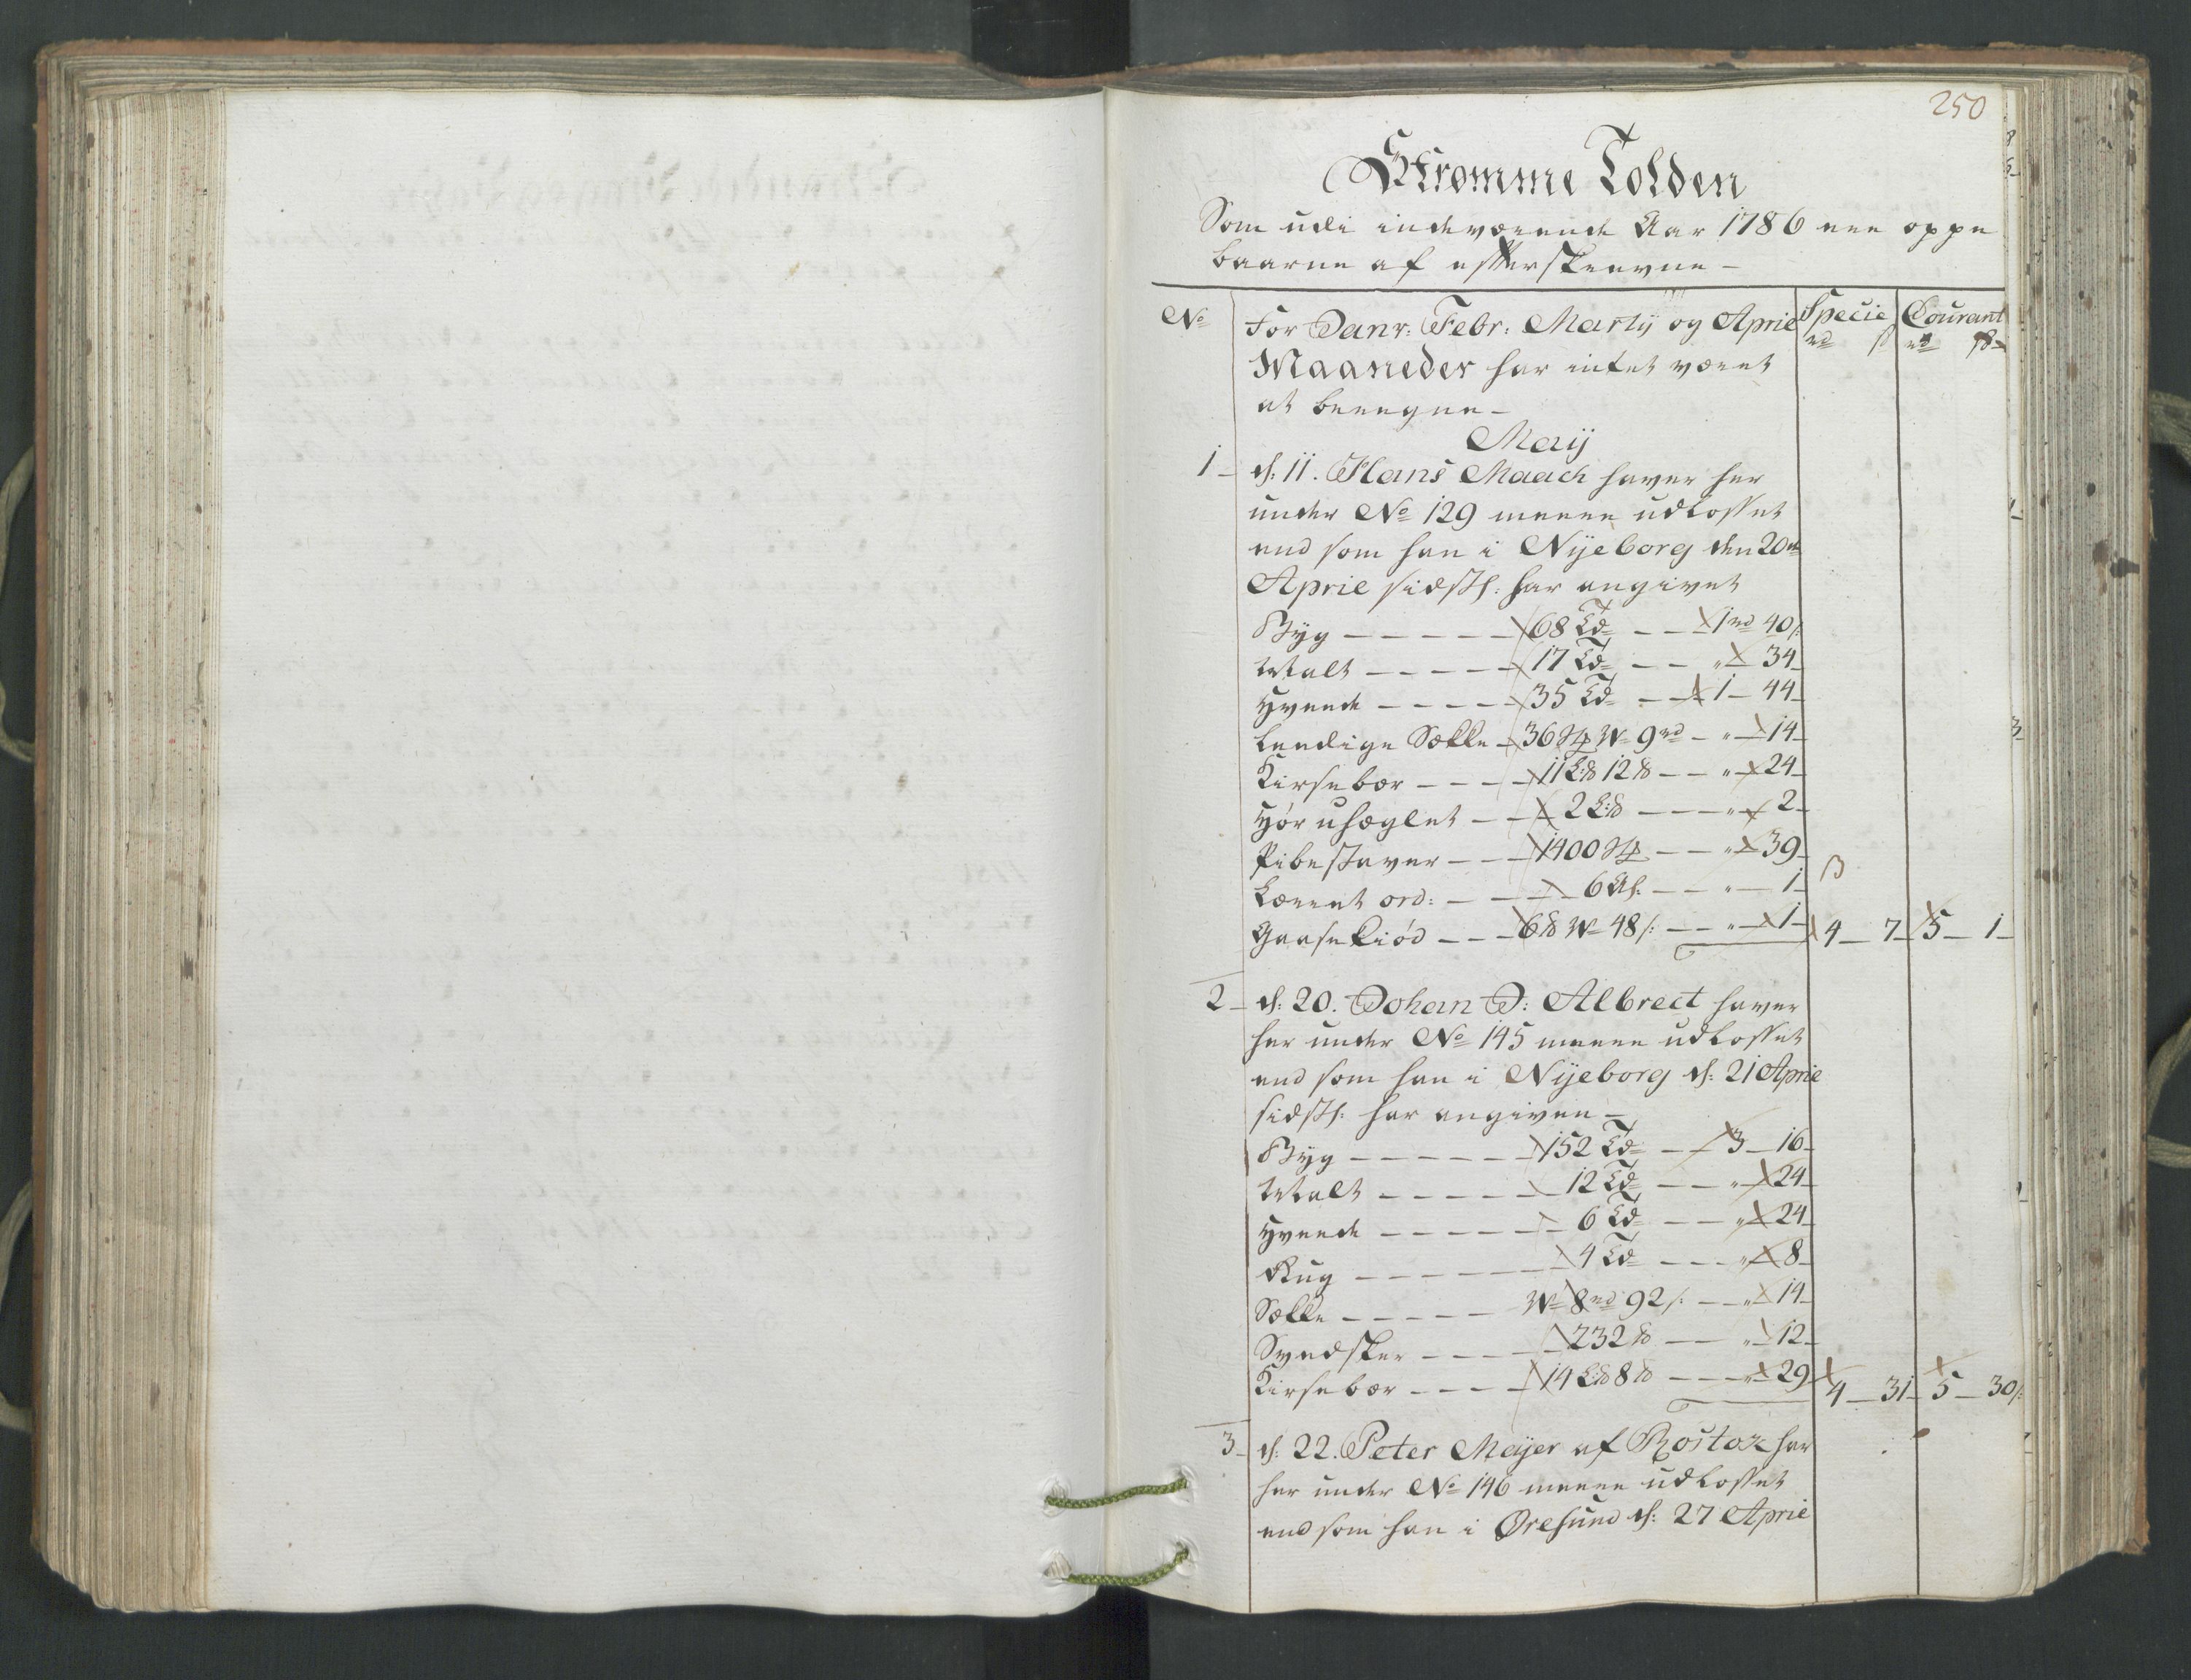 250
Strømme Tolden
Som udi indeværende Aar 1786 ere oppe
baarne af efterskrevne -
No
For Janr: Febr: Martij og April
Specie
Courant
rd s
rd s
Maaneder har intet været
at beregne -
Maij
1 - d: 11. Hans Maack haver her
under No 129 meere udlosset
end som han i Nyeborg den 20de
April sidstl: har angivet
Byg - - - - - 68 Td - - 1 rd 40 s:
Malt - - - - - 17 Td - - " 34 -
Hvede - - - - 35 Td - - 1 - 44 -
Leedige Sække - 36 Stk W 9 rd - " - 14 -
Kirsebær - - - - 11 L℔ 12 ℔ - - " 24 -
Hør uheglet - - 2 L:℔ - - - " 2 -
Pibestaver - - - 1400 Stk - - " 39 -
Lærret ord: - - - 6 Al: - - " - 1 -
Gaasekiød - - - 6 ℔ W 48 s: - - " - 1 - 4 - 7 - 5 - 1 -
2 - d: 20. Johan J: Albrect haver
her under No 145 meere udlosset
end som han i Nyeborg d: 21 April
sidstl: har angiven -
Byg - - - - - - 152 Td - - 3 - 16 -
Malt - - - - - 12 Td - - " 24 -
Hvede - - - - - 6 Td - - " 24 -
Rug - - - - - - 4 Td - - - " 8 -
Sække - - - - - W 8 rd 92 s: - - " 14 -
Svedsker - - - - 232 ℔ - - " 12 -
Kirsebær - - - - 14 L:℔ 8 ℔ - - - " 29 - 4 - 31 - 5 - 30 s:
3 - d: 22. Peter Meijer af Rostok har
her under No 146 meere udlosset
end som han i Øresund d: 27 April